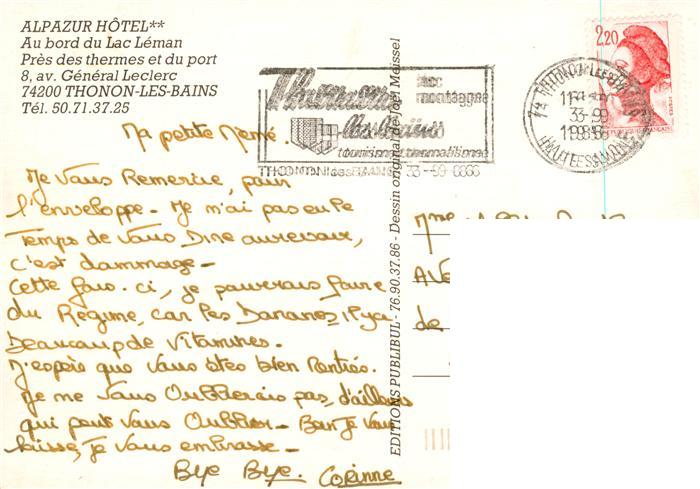 ALPAZUR HÔTEL**
Au bord du Lac Léman
Près des thermes et du port
8, av. Général Leclerc
74200 THONON-LES-BAINS
Tél. 50.71.37.25
Ma petite Mémé.
Je vous Remercie, pour
l'enveloppe. Je n'ai pas eu le
Temps de vous Dire aurevoir,
c'est dommage -
Cette fois. ci, je pourrais faire
du Régime, car les Bananes, il y a
Beaucoup de Vitamines.
J'espère que vous êtes bien Rentrés.
Je ne vous Oublierais pas, d'ailleurs
qui peut vous Oublier - Bon Je vous
laisse, Je vous embrasse -
Bye Bye. Corinne
EDITIONS PUBLIBUL - 76.90.37.86 - Dessin original de Joël Meissel
Thonon
les bains
lac
montagne
2,20
Mme
de